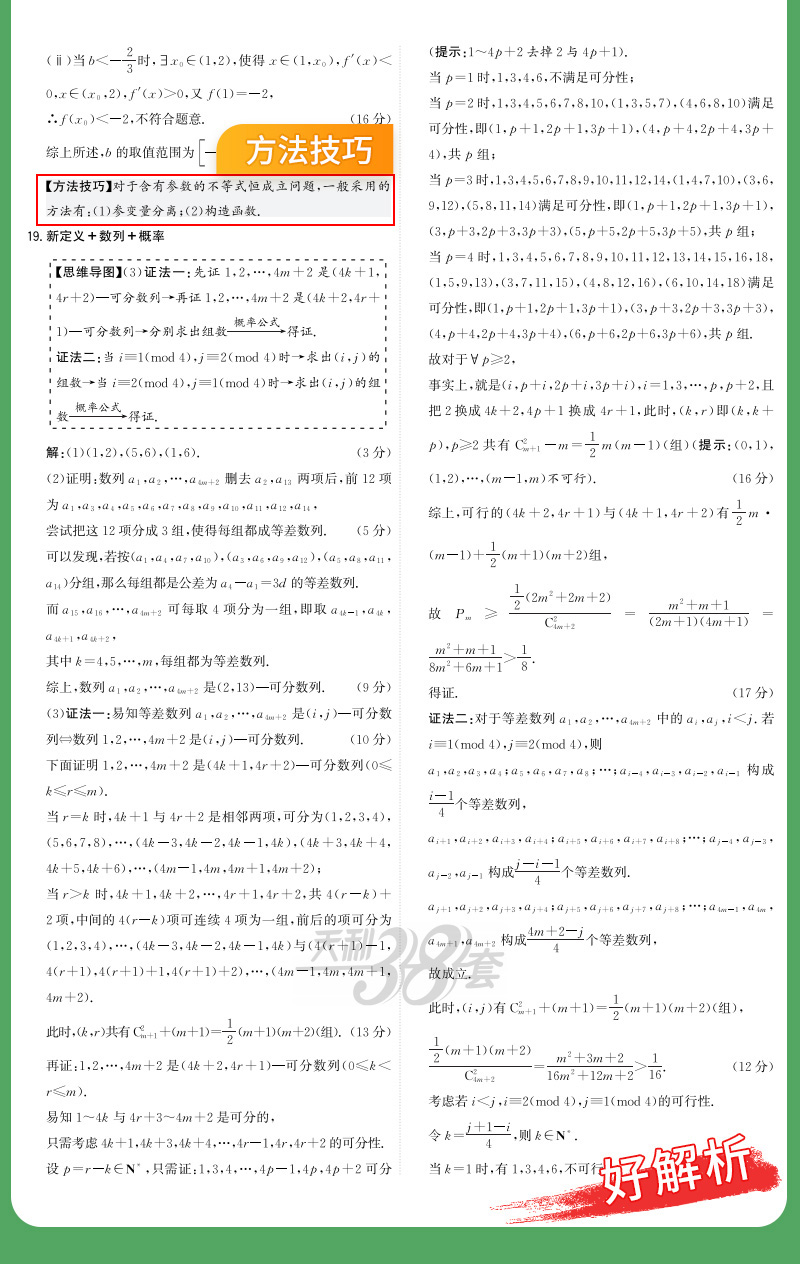 (ⅱ)当 b<-2/3时,∃x₀∈(1,2),使得 x∈(1,x₀),f′(x)<
0,x∈(x₀,2),f′(x)>0,又 f(1)=-2,
∴f(x₀)<-2,不符合题意. (16分)
综上所述,b 的取值范围为[-
方法技巧
【方法技巧】对于含有参数的不等式恒成立问题,一般采用的
方法有:(1)参变量分离;(2)构造函数.
19. 新定义+数列+概率
【思维导图】(3)证法一:先证 1,2,…,4m+2 是(4k+1,
4r+2)—可分数列→再证 1,2,…,4m+2 是(4k+2,4r+
1)—可分数列→分别求出组数 概率公式→得证.
证法二:当 i≡1(mod 4),j≡2(mod 4)时→求出(i,j)的
组数→当 i≡2(mod 4),j≡1(mod 4)时→求出(i,j)的组
数 概率公式→得证.
解:(1)(1,2),(5,6),(1,6). (3分)
(2)证明:数列 a₁,a₂,…,a₄ₘ₊₂ 删去 a₂,a₁₃ 两项后,前 12 项
为 a₁,a₃,a₄,a₅,a₆,a₇,a₈,a₉,a₁₀,a₁₁,a₁₂,a₁₄,
尝试把这 12 项分成 3 组,使得每组都成等差数列. (5分)
可以发现,若按(a₁,a₄,a₇,a₁₀),(a₃,a₆,a₉,a₁₂),(a₅,a₈,a₁₁,
a₁₄)分组,那么每组都是公差为 a₄-a₁=3d 的等差数列.
而 a₁₅,a₁₆,…,a₄ₘ₊₂ 可每取 4 项分为一组,即取 a₄ₖ₋₁,a₄ₖ,
a₄ₖ₊₁,a₄ₖ₊₂,
其中 k=4,5,…,m,每组都为等差数列.
综上,数列 a₁,a₂,…,a₄ₘ₊₂ 是(2,13)—可分数列. (9分)
(3)证法一:易知等差数列 a₁,a₂,…,a₄ₘ₊₂ 是(i,j)—可分数
列⇔数列 1,2,…,4m+2 是(i,j)—可分数列. (10分)
下面证明 1,2,…,4m+2 是(4k+1,4r+2)—可分数列(0≤
k≤r≤m).
当 r=k 时,4k+1 与 4r+2 是相邻两项,可分为(1,2,3,4),
(5,6,7,8),…,(4k-3,4k-2,4k-1,4k),(4k+3,4k+4,
4k+5,4k+6),…,(4m-1,4m,4m+1,4m+2);
当 r>k 时,4k+1,4k+2,…,4r+1,4r+2,共 4(r-k)+
2 项,中间的 4(r-k)项可连续 4 项为一组,前后的项可分为
(1,2,3,4),…,(4k-3,4k-2,4k-1,4k)与(4(r+1)-1,
4(r+1),4(r+1)+1,4(r+1)+2),…,(4m-1,4m,4m+1,
4m+2).
此时,(k,r)共有C²ₘ₊₁+(m+1)=1/2(m+1)(m+2)(组). (13分)
再证:1,2,…,4m+2 是(4k+2,4r+1)—可分数列(0≤k<
r≤m).
易知 1~4k 与 4r+3~4m+2 是可分的,
只需考虑 4k+1,4k+3,4k+4,…,4r-1,4r,4r+2 的可分性.
设 p=r-k∈N*,只需证:1,3,4,…,4p-1,4p,4p+2 可分
(提示:1~4p+2 去掉 2 与 4p+1).
当 p=1 时,1,3,4,6,不满足可分性;
当 p=2 时,1,3,4,5,6,7,8,10,(1,3,5,7),(4,6,8,10)满足
可分性,即(1,p+1,2p+1,3p+1),(4,p+4,2p+4,3p+
4),共 p 组;
当 p=3 时,1,3,4,5,6,7,8,9,10,11,12,14,(1,4,7,10),(3,6,
9,12),(5,8,11,14)满足可分性,即(1,p+1,2p+1,3p+1),
(3,p+3,2p+3,3p+3),(5,p+5,2p+5,3p+5),共 p 组;
当 p=4 时,1,3,4,5,6,7,8,9,10,11,12,13,14,15,16,18,
(1,5,9,13),(3,7,11,15),(4,8,12,16),(6,10,14,18)满足
可分性,即(1,p+1,2p+1,3p+1),(3,p+3,2p+3,3p+3),
(4,p+4,2p+4,3p+4),(6,p+6,2p+6,3p+6),共 p 组.
故对于∀p≥2,
事实上,就是(i,p+i,2p+i,3p+i),i=1,3,…,p,p+2,且
把 2 换成 4k+2,4p+1 换成 4r+1,此时,(k,r)即(k,k+
p),p≥2 共有 C²ₘ₊₁-m=1/2m(m-1)(组)(提示:(0,1),
(1,2),…,(m-1,m)不可行). (16分)
综上,可行的(4k+2,4r+1)与(4k+1,4r+2)有1/2m·
(m-1)+1/2(m+1)(m+2)组,
故 Pₘ ≥ 1/2(2m²+2m+2)/C²₄ₘ₊₂ = (m²+m+1)/((2m+1)(4m+1)) =
(m²+m+1)/(8m²+6m+1)>1/8.
得证. (17分)
证法二:对于等差数列 a₁,a₂,…,a₄ₘ₊₂ 中的 aᵢ,aⱼ,i<j.若
i≡1(mod 4),j≡2(mod 4),则
a₁,a₂,a₃,a₄;a₅,a₆,a₇,a₈;…;aᵢ₋₄,aᵢ₋₃,aᵢ₋₂,aᵢ₋₁ 构成
(i-1)/4个等差数列,
aᵢ₊₁,aᵢ₊₂,aᵢ₊₃,aᵢ₊₄;aᵢ₊₅,aᵢ₊₆,aᵢ₊₇,aᵢ₊₈;…;aⱼ₋₄,aⱼ₋₃,
aⱼ₋₂,aⱼ₋₁ 构成(j-i-1)/4个等差数列.
aⱼ₊₁,aⱼ₊₂,aⱼ₊₃,aⱼ₊₄;aⱼ₊₅,aⱼ₊₆,aⱼ₊₇,aⱼ₊₈;…;a₄ₘ₋₁,a₄ₘ,
a₄ₘ₊₁,a₄ₘ₊₂ 构成(4m+2-j)/4个等差数列,
故成立.
此时,(i,j)有 C²ₘ₊₁+(m+1)=1/2(m+1)(m+2)(组),
1/2(m+1)(m+2)/C²₄ₘ₊₂=(m²+3m+2)/(16m²+12m+2)>1/16. (12分)
考虑若 i<j,i≡2(mod 4),j≡1(mod 4)的可行性.
令 k=(j+1-i)/4,则 k∈N*.
当 k=1 时,有 1,3,4,6,不可行
好解析
天利38套